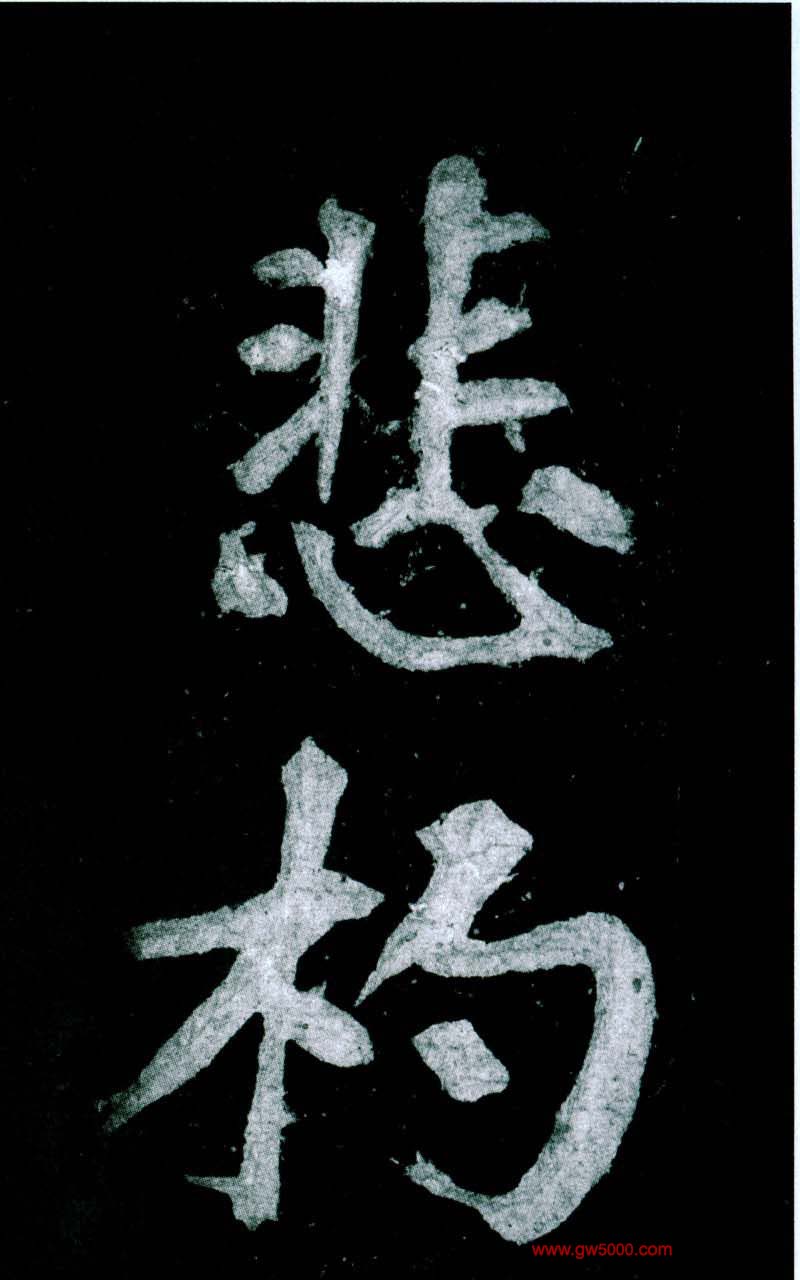 悲
杓
www.gw5000.com